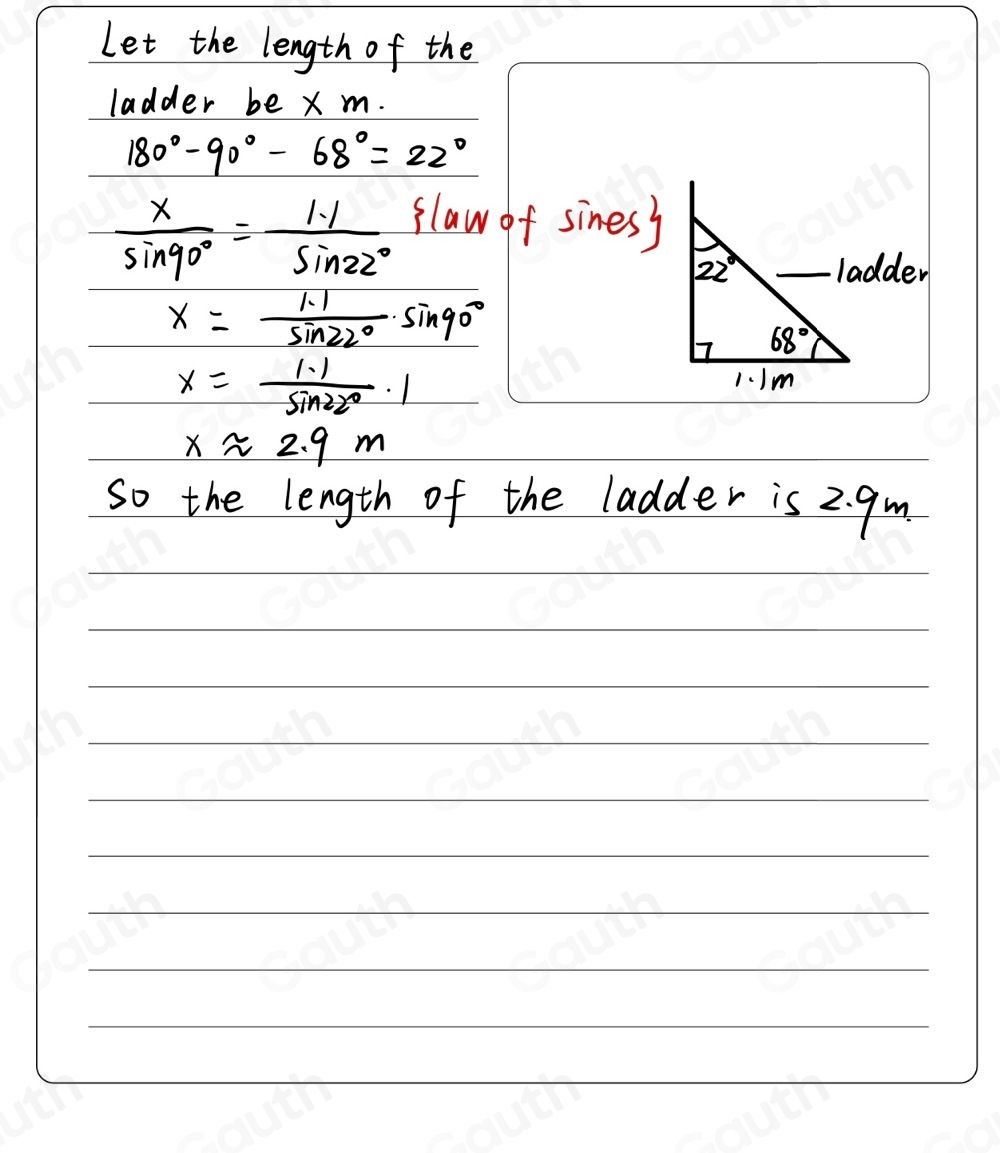 Let the length of the
ladder be x m.
180° - 90° - 68° = 22°
x/sin90° = 1.1/sin22° {law of sines}
x = 1.1/sin22° · sin90°
x = 1.1/sin22° · 1
x ≈ 2.9 m
So the length of the ladder is 2.9m.
22°
ladder
68°
1.1m
Gauth